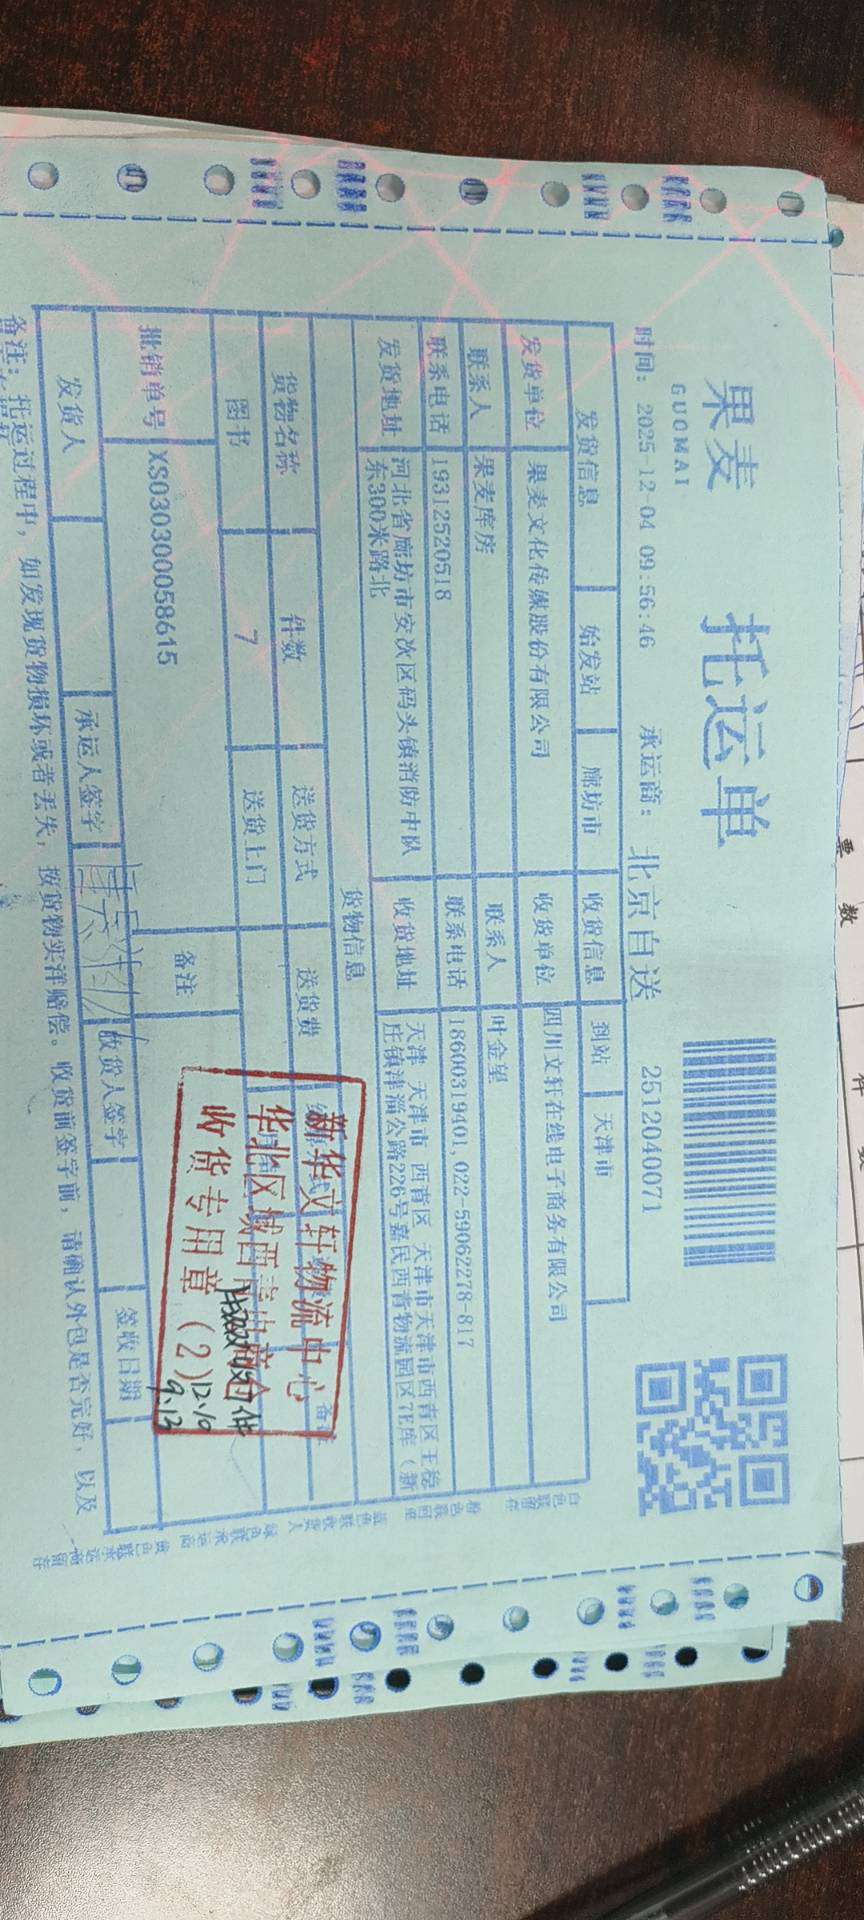 果麦
GUOMAI
托运单
时间: 2025-12-04 09:56:46 承运商: 北京自送 2512040071
发货信息 始发站 廊坊市 收货信息 到站 天津市
发货单位 果麦文化传媒股份有限公司 收货单位 四川文轩在线电子商务有限公司
联系人 果麦库房 联系人 叶金星
联系电话 19312520518 联系电话 18600319401,022-59062278-817
发货地址 河北省廊坊市安次区码头镇消防中队 收货地址 天津 天津市 西青区 天津市天津市西青区王稳
东300米路北 庄镇津淄公路226号嘉民西青物流园区7E库(新
货物信息
货物名称 件数 送货方式 送货费 备注
图书 7 送货上门
批销单号 XS030300058615 备注
发货人 承运人签字 收货人签字 签收日期
备注: 托运过程中, 如发现货物损坏或者丢失, 按货物实洋赔偿。收货前签字前, 请确认外包是否完好, 以及
新华文轩物流中心
华北区域西青
收货专用章(2)
12.10
9.13
白色联留存
粉色联回单
蓝色联收货人
绿色联承运商
黄色联承运商留存
票数
件数